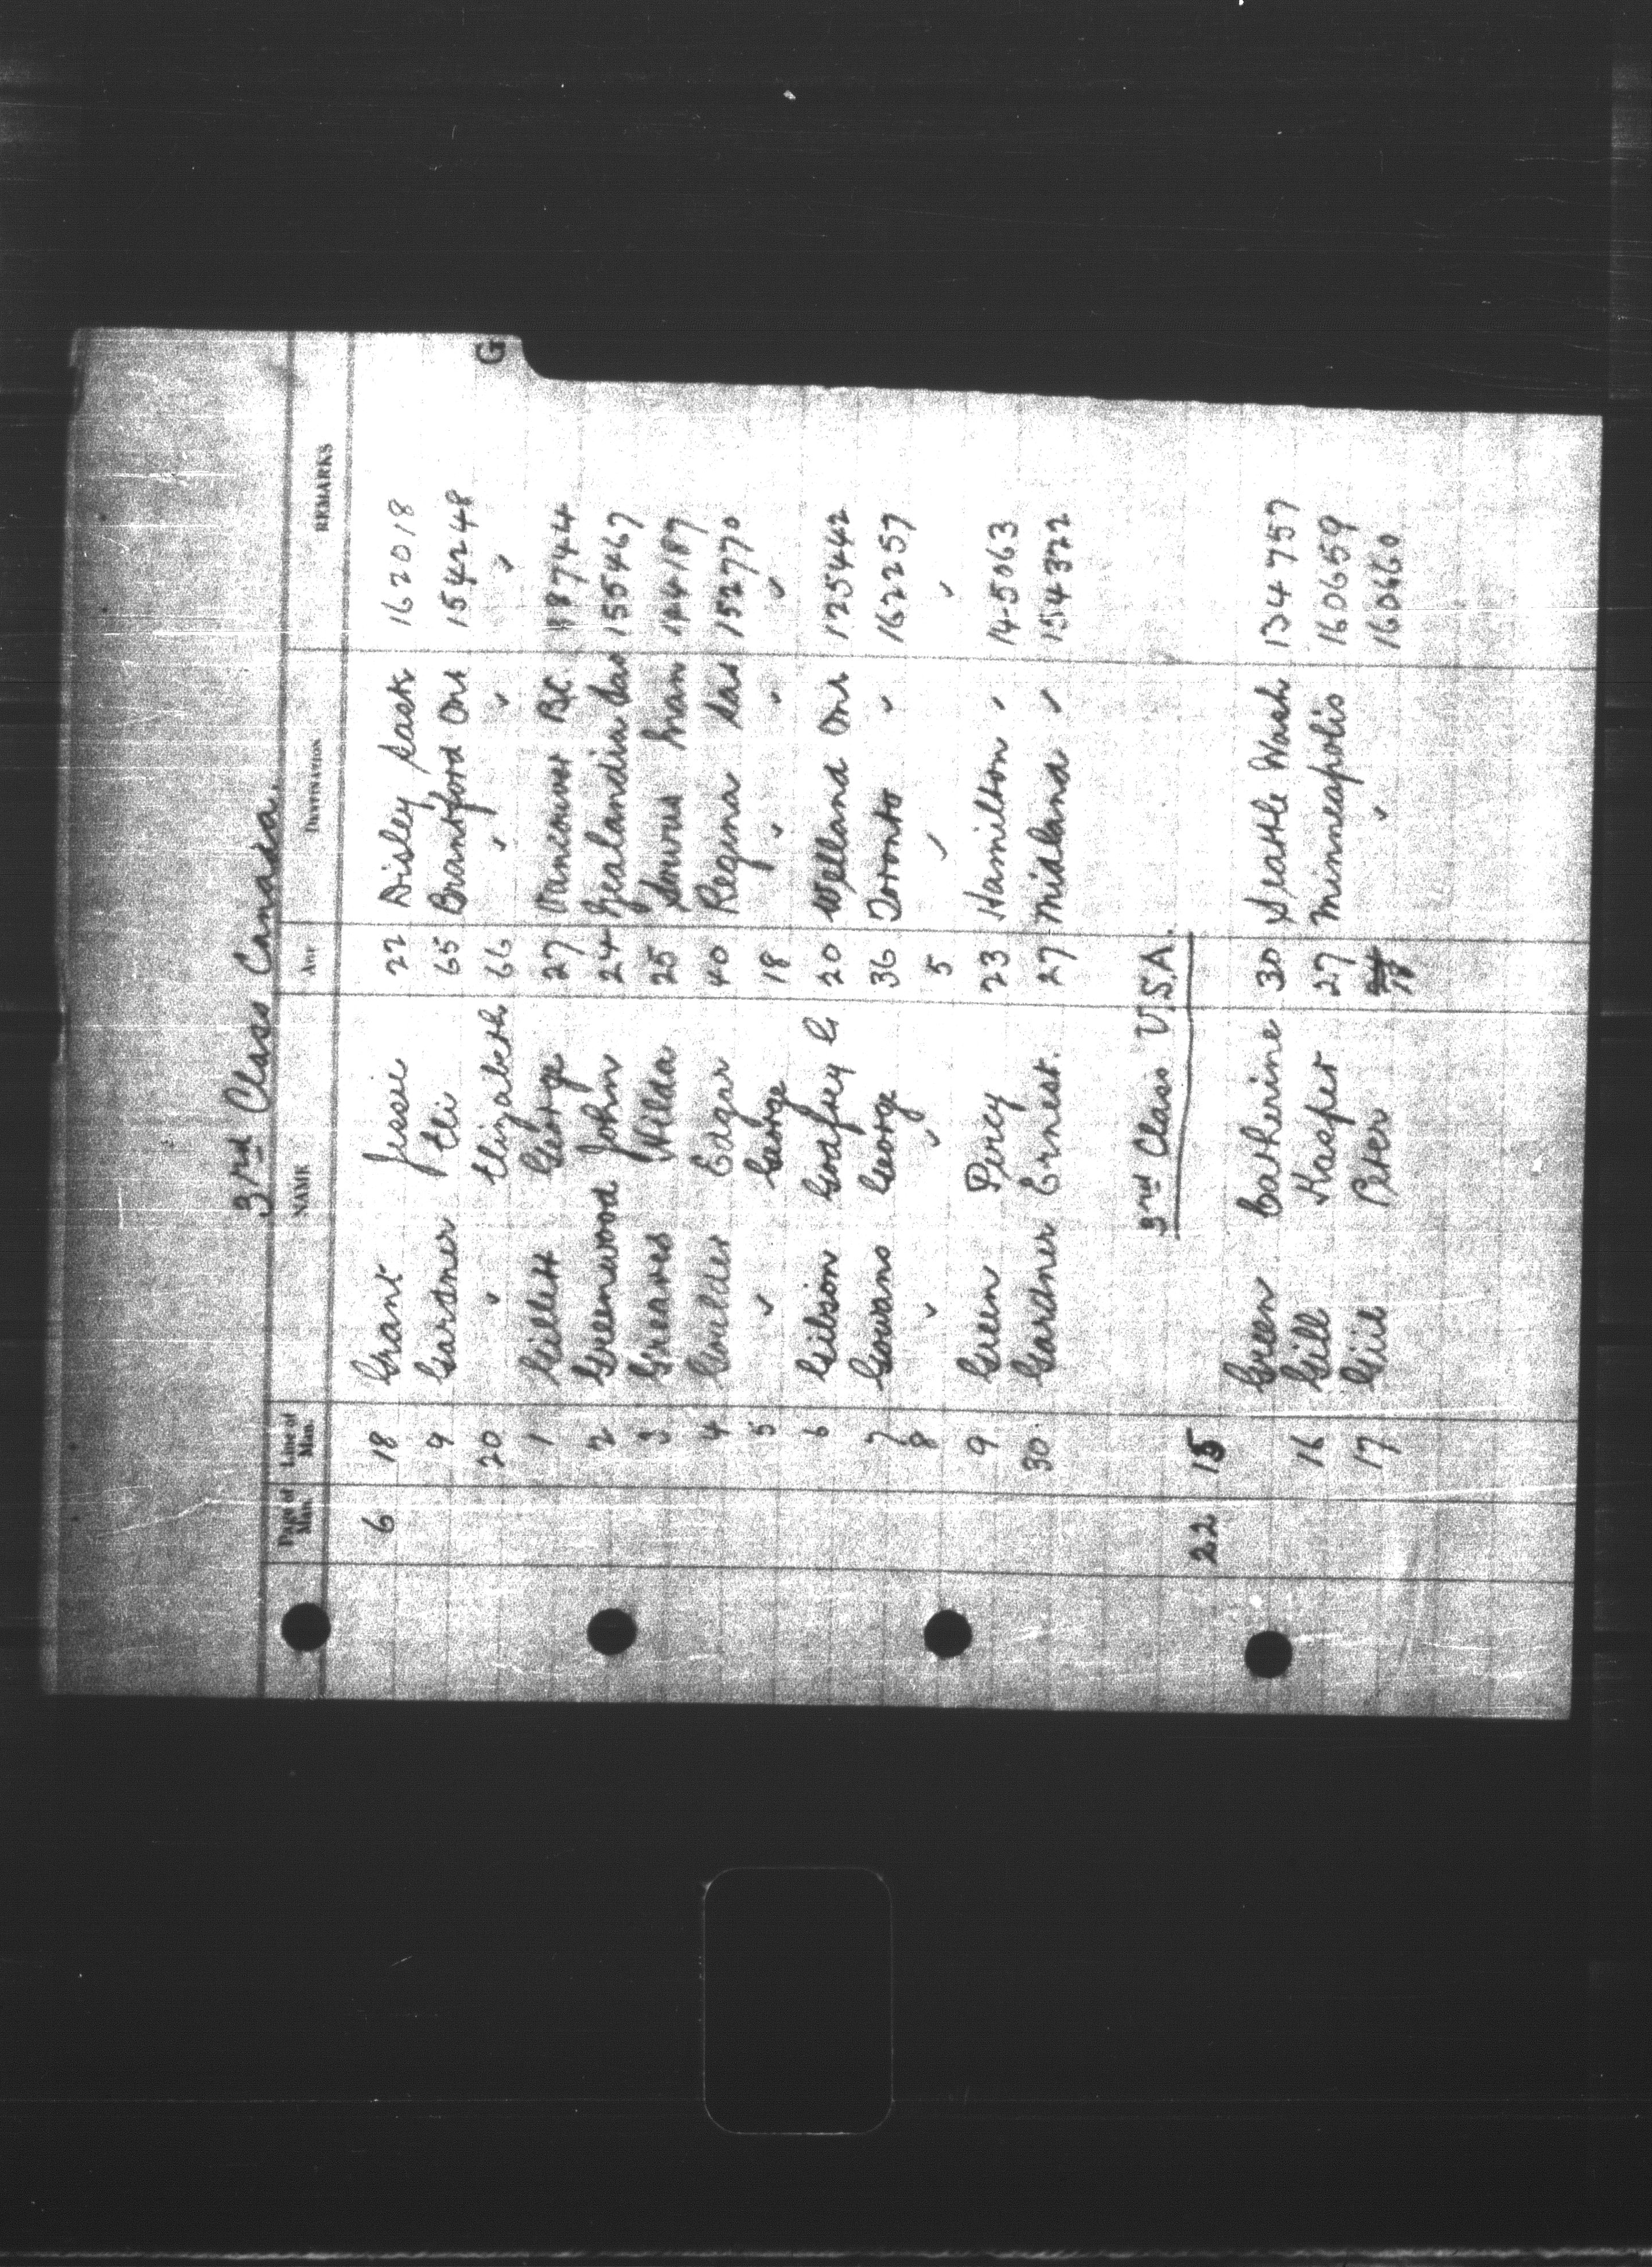 G
3rd Class Canada.
Page of Man. Line of Man. NAME AGE DESTINATION REMARKS
6 18 Grant Jessie 22 Disley Sask 162018
9 Gardner Eli 65 Brantford Ont 154248
20 " Elizabeth 66 " " "
1 Gillett George 27 Vancouver B.C. 187744
2 Greenwood John 24 Zealandia Sas 155467
3 Greaves Hilda 25 Souris Man 144187
4 Goulder Edgar 40 Regina Sas 152770
5 " George 18 " " "
6 Geilson Godfrey G 20 Welland Ont 125442
7 Gowans George 36 Toronto " 162257
8 " " 5 " "
9 Green Percy 23 Hamilton " 145063
30 Gardner Ernest. 27 Midland " 154322
3rd Class U.S.A.
22 15 Green Catherine 30 Seattle Wash 134757
16 Gill Kasper 27 Minneapolis 160659
17 Giil Peter 18 " 160660